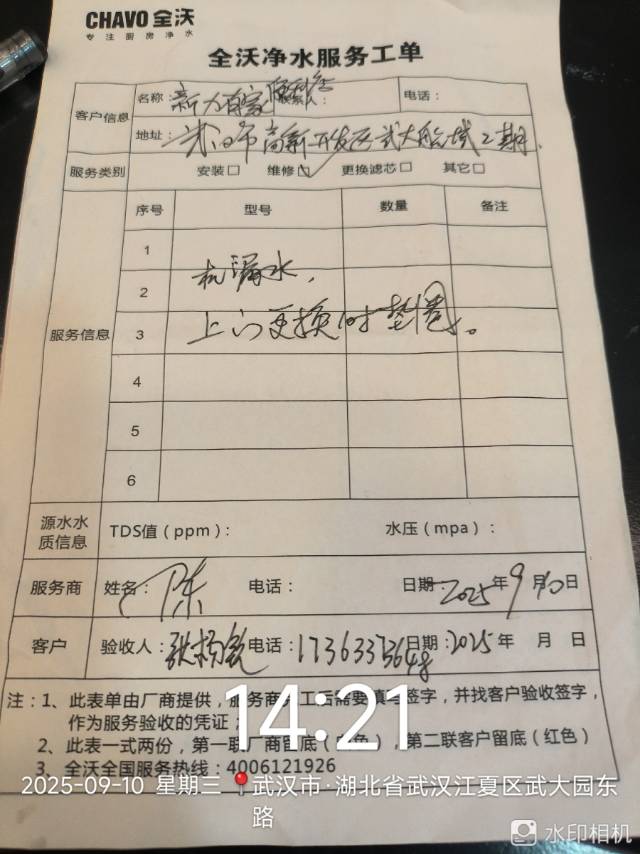 CHAVO 全沃
专注厨房净水
全沃净水服务工单
客户信息 名称: 新力百家便利店 联系人: 电话:
地址: 武汉市高新开发区武大 城2期.
服务类别 安装□ 维修☑ 更换滤芯□ 其它□
服务信息 序号 型号 数量 备注
1
2 机漏水,
3 上门更换 垫圈。
4
5
6
源水水质信息 TDS值(ppm): 水压(mpa):
服务商 姓名: 陈 电话: 日期: 2025年9月10日
客户 验收人: 张杨 电话: 17363373648 日期: 2025年 月 日
注:1、此表单由厂商提供,服务商 工后需要填写签字,并找客户验收签字,
作为服务验收的凭证;
2、此表一式两份,第一联厂商留底(白色),第二联客户留底(红色)
3、全沃全国服务热线:4006121926
14:21
2025-09-10 星期三 武汉市·湖北省武汉江夏区武大园东
路
水印相机